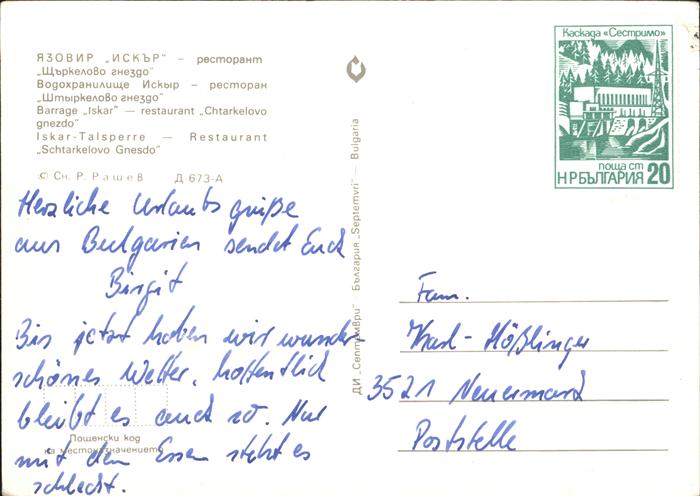 ЯЗОВИР „ИСКЪР" – ресторант
„Щъркелово гнездо"
Водохранилище Искыр – ресторан
„Штыркелово гнездо"
Barrage „Iskar" — restaurant „Chtarkelovo
gnezdo"
Iskar-Talsperre — Restaurant
„Schtarkelovo Gnesdo"
© Сн. Р. Рашев Д 673-А
Herzliche Urlaubsgrüße
aus Bulgarien sendet Euch
Birgit
Bis jetzt haben wir wunder-
schönes Wetter, hoffentlich
bleibt es auch so. Nur
mit dem Essen steht es
schlecht.
Пощенски код
на местоназначението
ДИ „Септември" България „Septemvri" — Bulgaria
Каскада «Сестримо»
поща ст
НР БЪЛГАРИЯ 20
Fam.
Karl-Hößlinger
3521 Neuermark
Poststelle